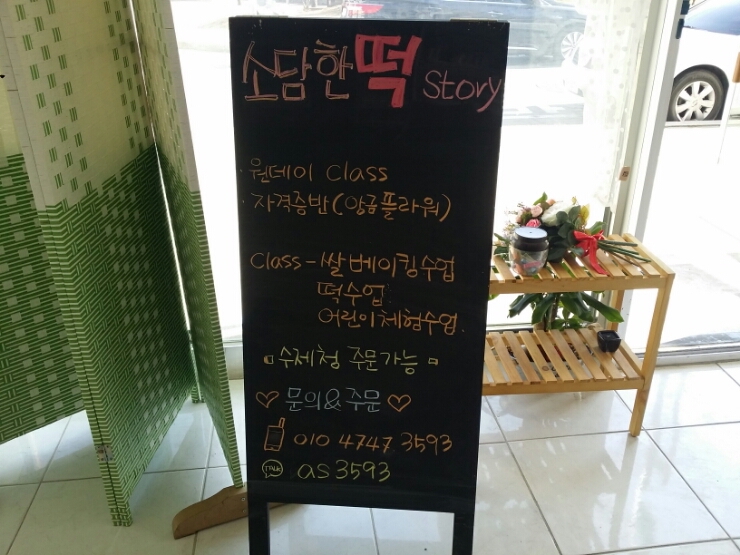 소담한 떡 Story
· 원데이 Class
· 자격증반(앙금플라워)
Class - 쌀베이킹수업
떡수업
어린이체험수업
▫수제청 주문가능▫
♡ 문의&주문 ♡
010 4747 3593
TALK as3593